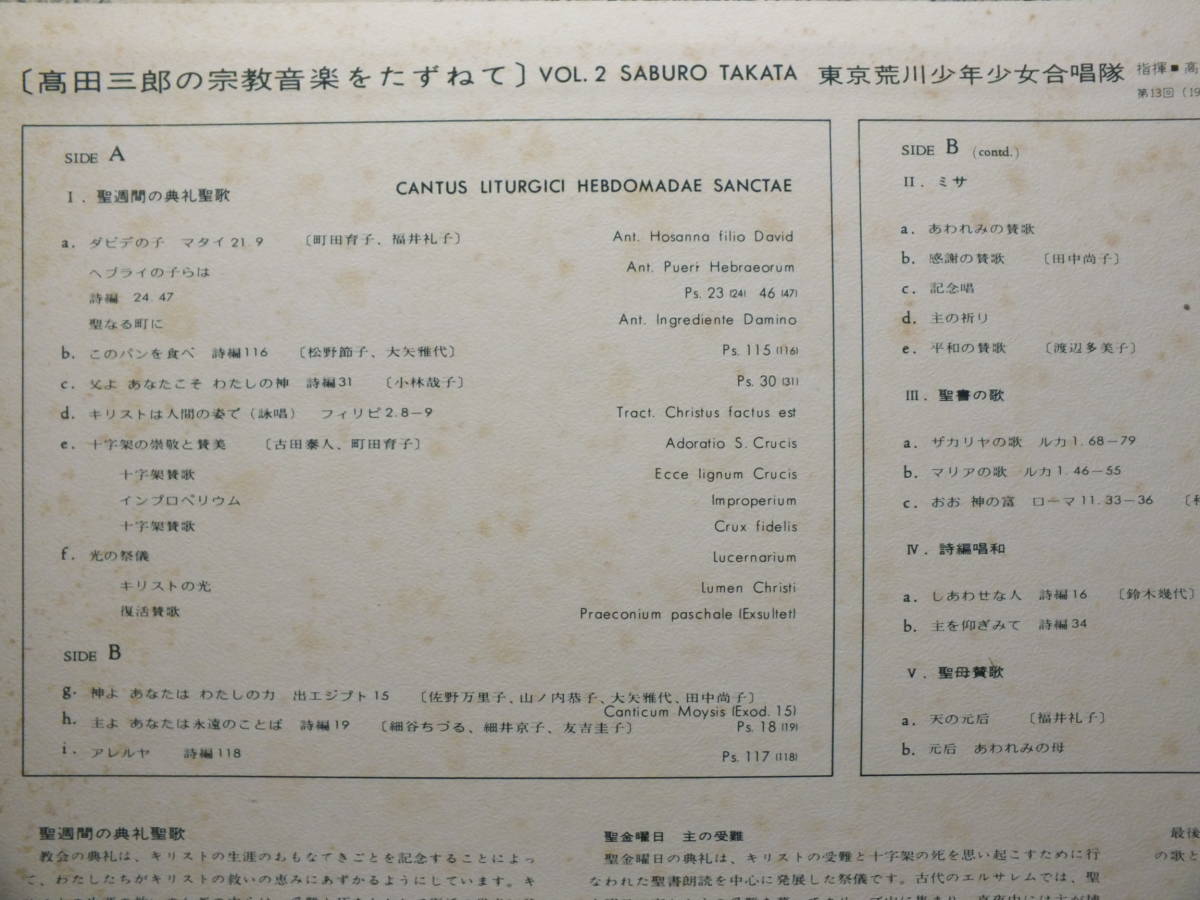 〔髙田三郎の宗教音楽をたずねて〕 VOL. 2 SABURO TAKATA 東京荒川少年少女合唱隊
指揮■髙
第13回 (19
SIDE A
I. 聖週間の典礼聖歌 CANTUS LITURGICI HEBDOMADAE SANCTAE
a. ダビデの子 マタイ21.9 〔町田育子、福井礼子〕 Ant. Hosanna filio David
ヘブライの子らは Ant. Pueri Hebraeorum
詩編 24.47 Ps. 23 (24) 46 (47)
聖なる町に Ant. Ingrediente Damino
b. このパンを食べ 詩編116 〔松野節子、大矢雅代〕 Ps. 115 (116)
c. 父よ あなたこそ わたしの神 詩編31 〔小林哉子〕 Ps. 30 (31)
d. キリストは人間の姿で(詠唱) フィリピ2.8−9 Tract. Christus factus est
e. 十字架の崇敬と賛美 〔古田泰人、町田育子〕 Adoratio S. Crucis
十字架賛歌 Ecce lignum Crucis
インプロペリウム Improperium
十字架賛歌 Crux fidelis
f. 光の祭儀 Lucernarium
キリストの光 Lumen Christi
復活賛歌 Praeconium paschale (Exsultet)
SIDE B
g. 神よ あなたは わたしの力 出エジプト15 〔佐野万里子、山ノ内恭子、大矢雅代、田中尚子〕
Canticum Moysis (Exod. 15)
h. 主よ あなたは永遠のことば 詩編19 〔細谷ちづる、細井京子、友吉圭子〕 Ps. 18 (19)
i. アレルヤ 詩編118 Ps. 117 (118)
SIDE B (contd.)
II. ミサ
a. あわれみの賛歌
b. 感謝の賛歌 〔田中尚子〕
c. 記念唱
d. 主の祈り
e. 平和の賛歌 〔渡辺多美子〕
III. 聖書の歌
a. ザカリヤの歌 ルカ1.68−79
b. マリアの歌 ルカ1.46−55
c. おお 神の富 ローマ11.33−36 〔
IV. 詩編唱和
a. しあわせな人 詩編16 〔鈴木幾代〕
b. 主を仰ぎみて 詩編34
V. 聖母賛歌
a. 天の元后 〔福井礼子〕
b. 元后 あわれみの母
聖週間の典礼聖歌
教会の典礼は、キリストの生涯のおもなできごとを記念することによっ
て、わたしたちがキリストの救いの恵みにあずかるようにしています。キ
聖金曜日 主の受難
聖金曜日の典礼は、キリストの受難と十字架の死を思い起こすために行
なわれた聖書朗読を中心に発展した祭儀です。古代のエルサレムでは、聖
最後
の歌と